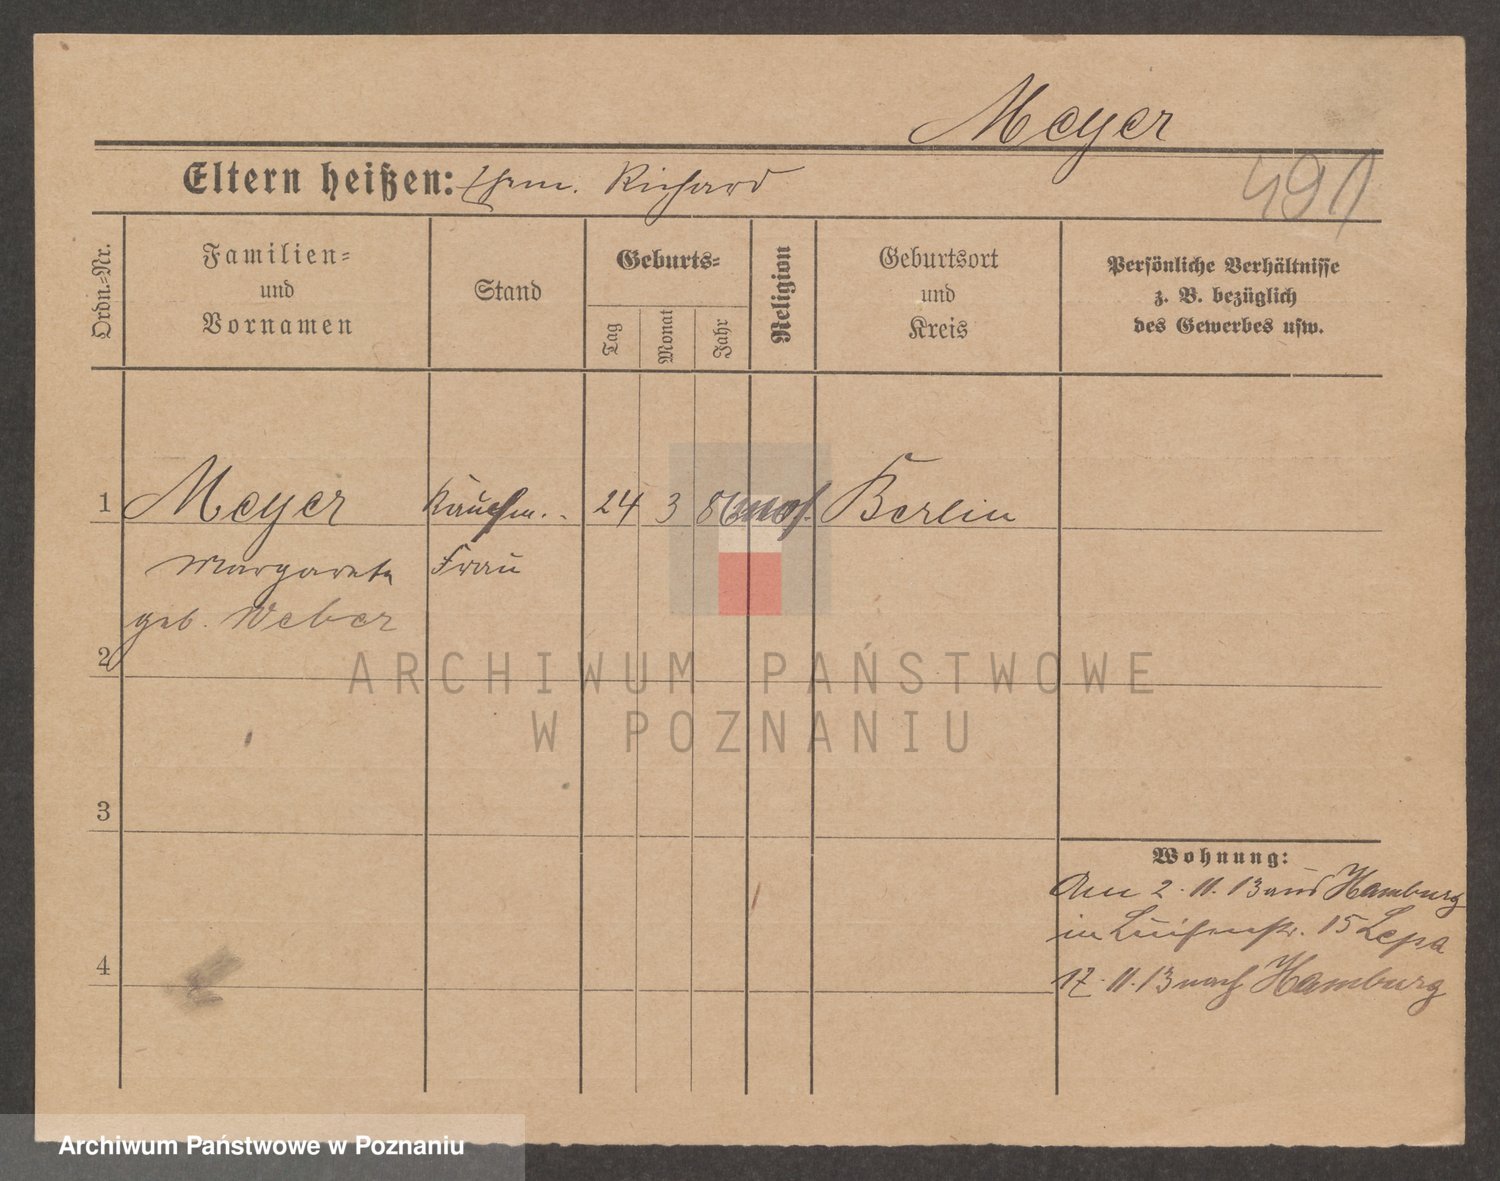 Meyer
Eltern heißen: Ehem. Richard
491
Ordn.-Nr.
Familien-
und
Vornamen
Stand
Geburts-
Tag
Monat
Jahr
Religion
Geburtsort
und
Kreis
Persönliche Verhältnisse
z. B. bezüglich
des Gewerbes usw.
1 Meyer Kaufm. 24 3 86 mos. Berlin
Margarete Frau
geb. Weber
2
ARCHIWUM PAŃSTWOWE
W POZNANIU
3
Wohnung:
Am 2.11.13 aus Hamburg
in Luisenstr. 15
4
17.11.13 nach Hamburg
Archiwum Państwowe w Poznaniu